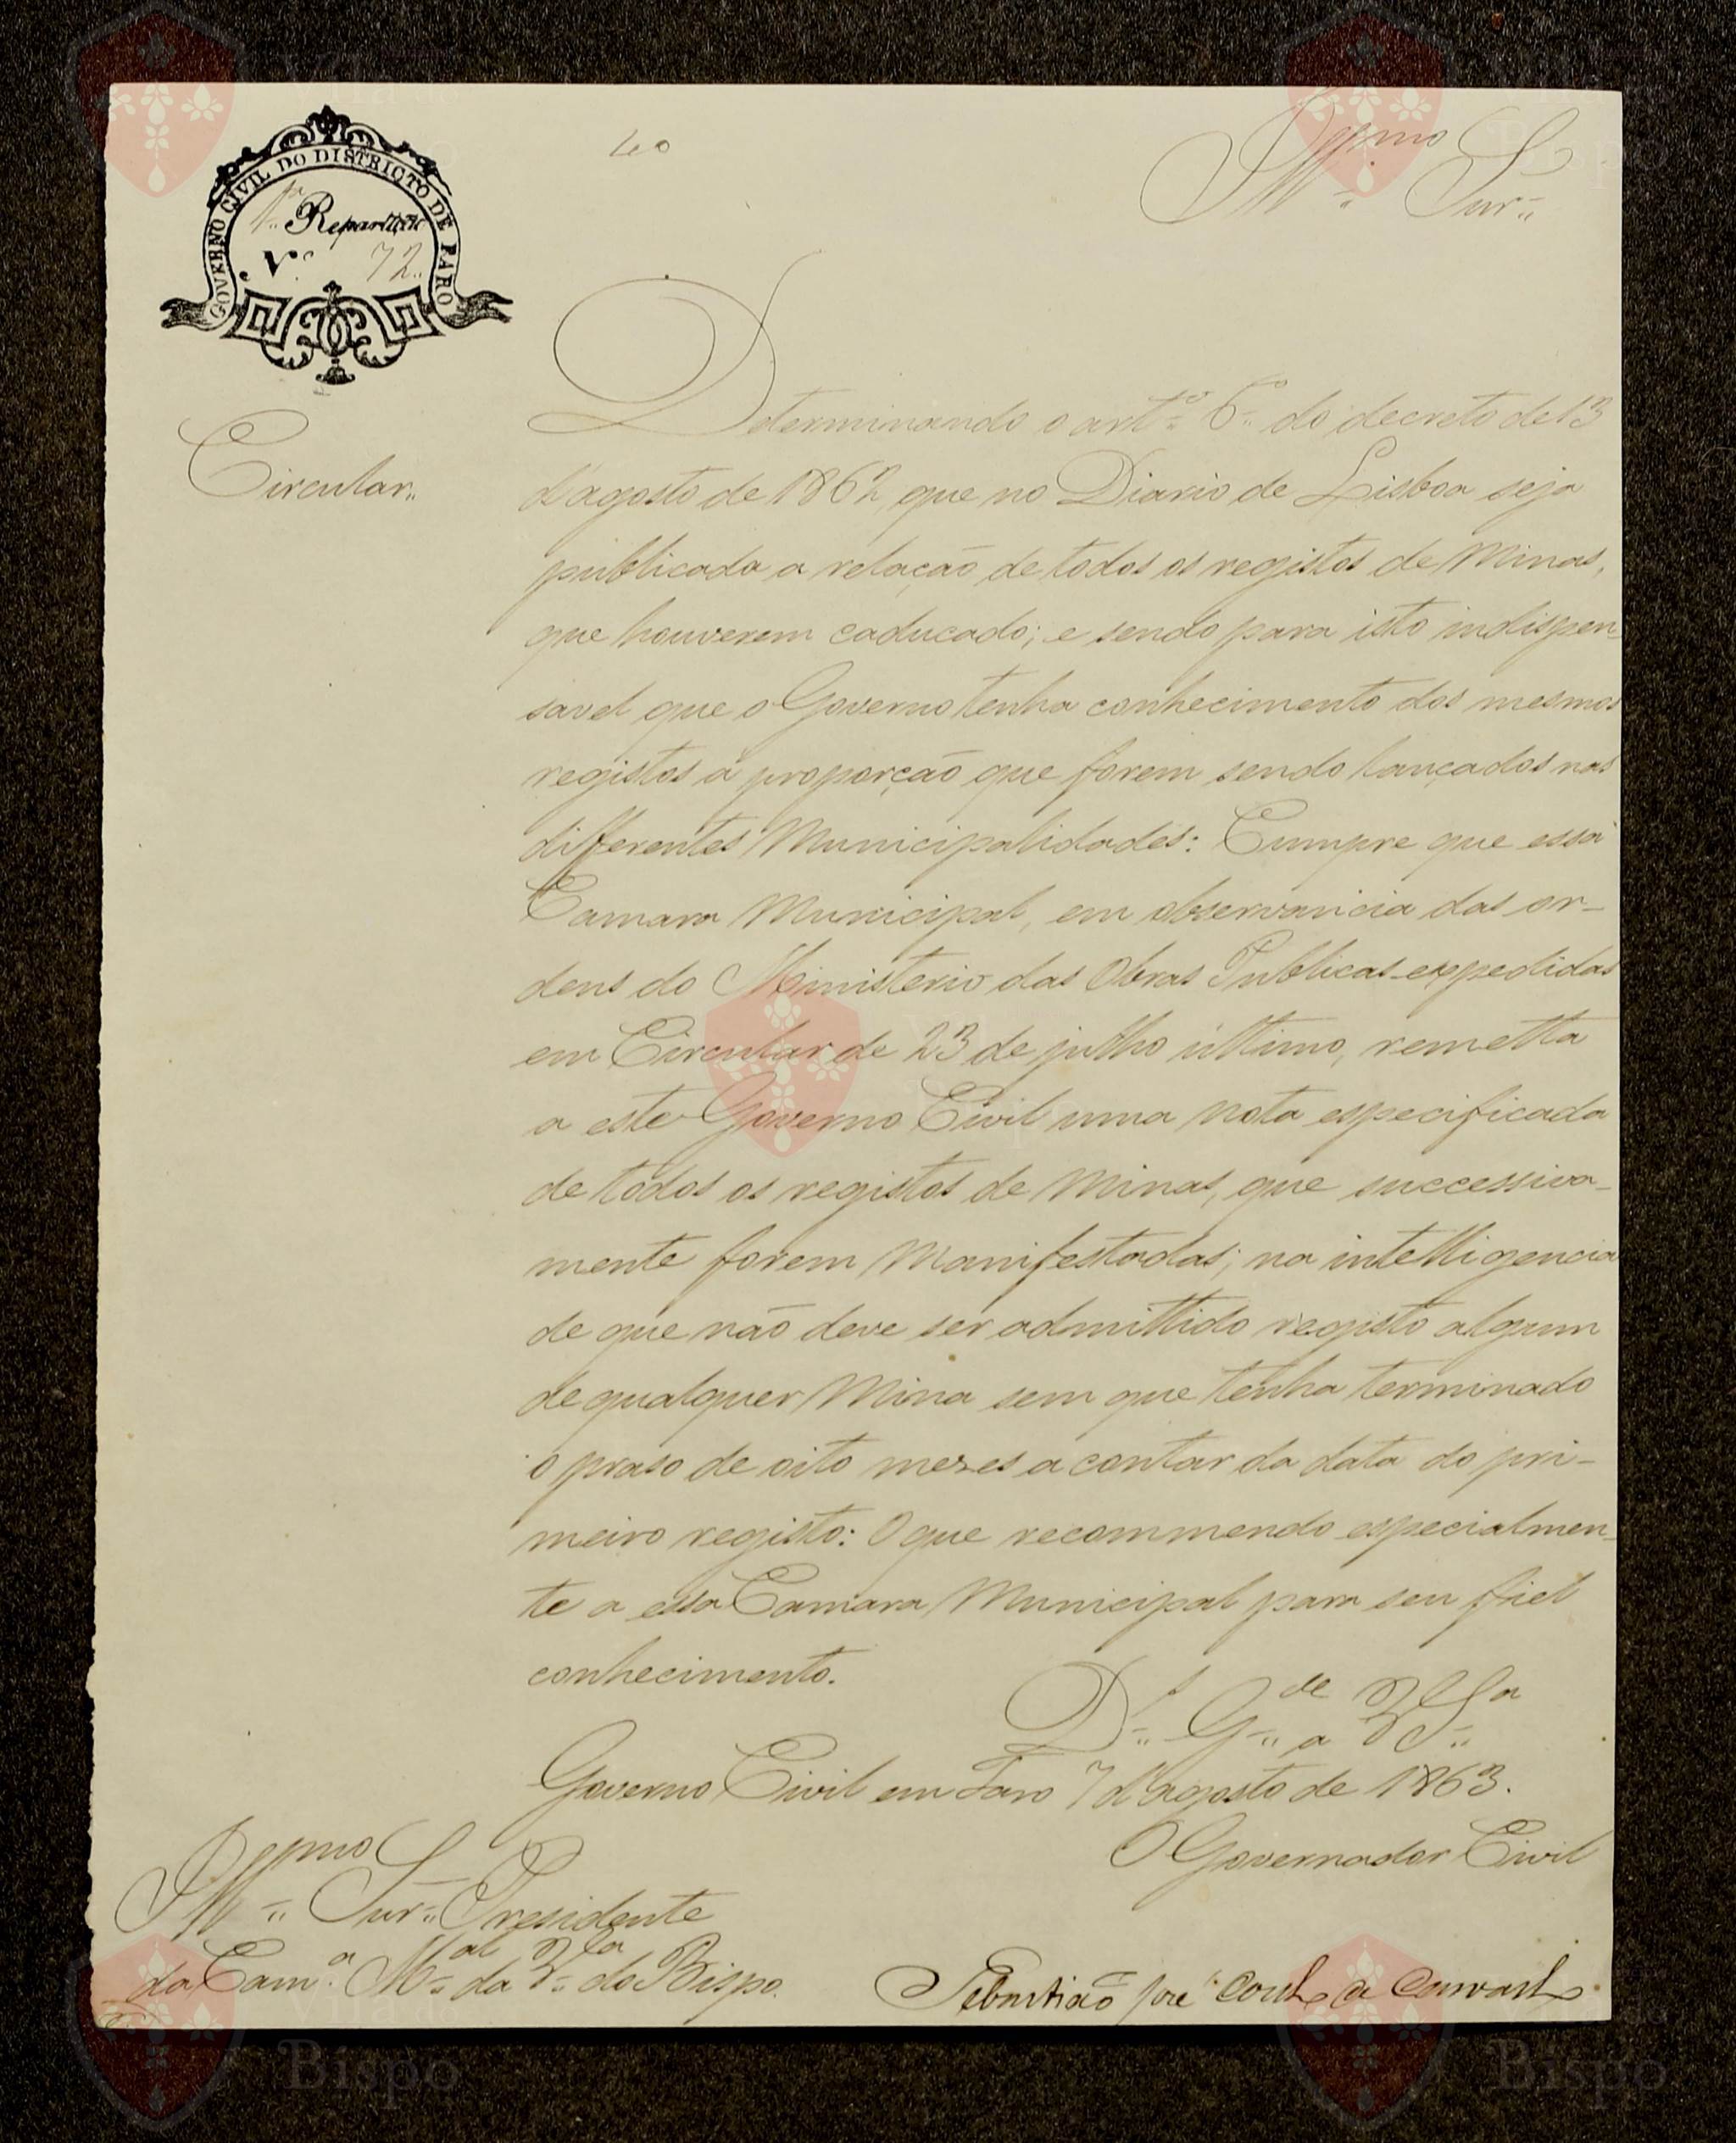 40
Ill.mo Snr.
GOVERNO CIVIL DO DISTRICTO DE FARO
1.a Repartição
N.o 72
Circular.
Determinando o art.o 6.o do decreto de 13
d'agosto de 1862, que no Diario de Lisboa seja
publicada a relação de todos os registos de Minas,
que houverem caducado; e sendo para isto indispen-
savel que o Governo tenha conhecimento dos mesmos
registos á proporção que forem sendo lançados nas
differentes Municipalidades: Cumpre que essa
Camara Municipal, em observancia das or-
dens do Ministerio das Obras Publicas expedidas
em Circular de 23 de julho último, remetta
a este Governo Civil uma nota especificada
de todos os registos de Minas, que successiva-
mente forem Manifestadas; na intelligencia
de que não deve ser admittido registo algum
de qualquer Mina sem que tenha terminado
o praso de oito mezes a contar da data do pri-
meiro registo: O que recommendo especialmen-
te a essa Camara Municipal para seu fiel
conhecimento.
D.s G.de a V S.a
Governo Civil em Faro 7 d'agosto de 1863.
O Governador Civil
Ill.mo Snr. Presidente
da Cam.a M.al da V.la do Bispo.
Sebastião José Coelho de Carvalho
Vila do
Bispo